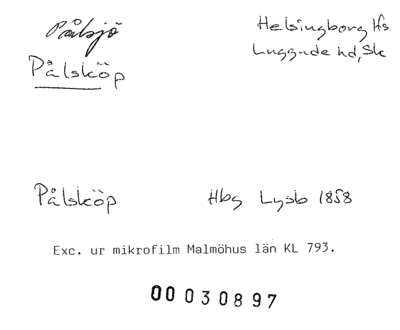 Pålsjö
Pålsköp
Helsingborg lfs
Luggude hd, Sk
Pålsköp Hbg Lysb 1858
Exc. ur mikrofilm Malmöhus län KL 793.
00 030897